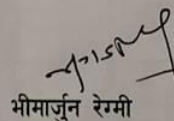 भीमार्जुन रेग्मी